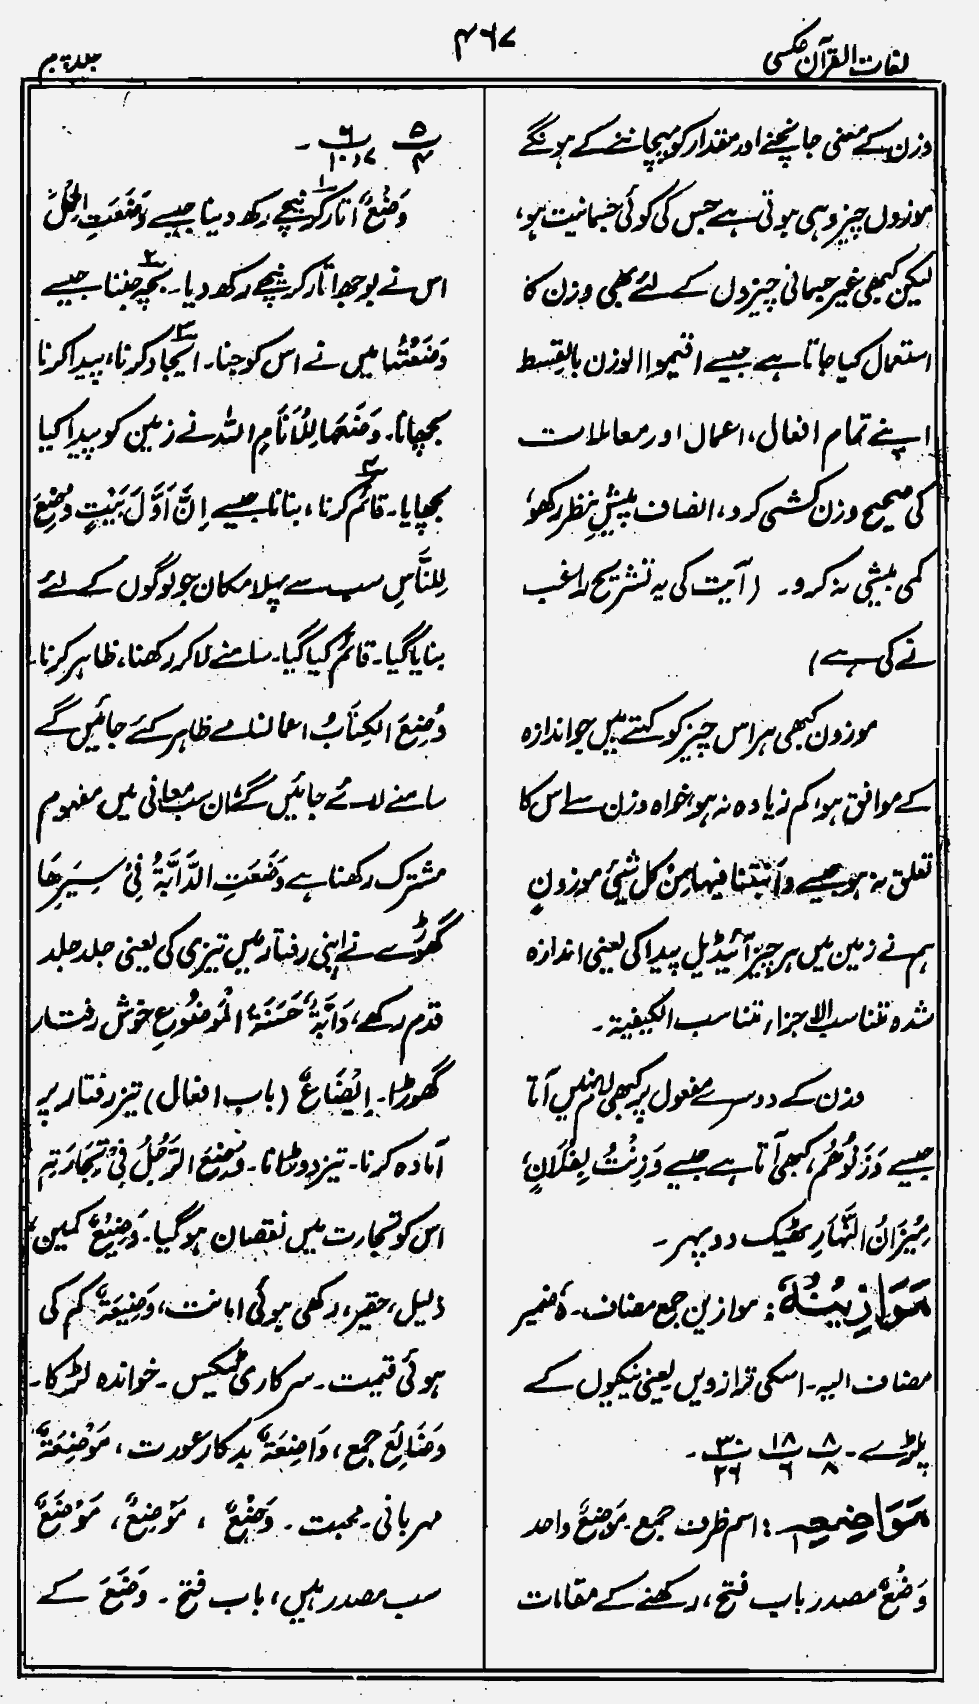 لغات القرآن عکسی
۴۶۷
جلد پنجم
وزن کے معنی جانچنے اور مقدار کو پہچاننے کے ہونگے
موزوں چیز وہی ہوتی ہے جس کی کوئی جسمانیت ہو،
لیکن کبھی غیر جسمانی چیزوں کے لئے بھی وزن کا
استعمال کیا جاتا ہے جیسے اقیموا الوزن بالقِسط
اپنے تمام افعال، اعمال اور معاملات
کی صحیح وزن کشی کرو، انصاف پیشِ نظر رکھو،
کمی بیشی نہ کرو۔ (آیت کی یہ تشریح راغب
نے کی ہے)
موزون کبھی ہر اس چیز کو کہتے ہیں جو اندازہ
کے موافق ہو، کم زیادہ نہ ہو، خواہ وزن سے اس کا
تعلق نہ ہو جیسے وَاَنْبَتْنَا فِیہا مِنْ کل شیئ موزونٍ
ہم نے زمین میں ہر چیز آئیڈیل پیدا کی یعنی اندازہ
شدہ تناسب الاجزار، تناسب الکیفیۃ۔
وزن کے دوسرے مفعول پر کبھی لام نہیں آتا
جیسے وَزَنُوْھُمْ، کبھی آتا ہے جیسے وَزِنْتُ لِفُلَانٍ،
مِیْزَانُ النَّہَارِ ٹھیک دوپہر۔
مَوَازِیْنُہٗ: موازین جمع مضاف۔ ہٗ ضمیر
مضاف الیہ۔ اسکی ترازویں یعنی نیکیوں کے
پلڑے۔ ۸/۸ ۱۸/۶ ۳۰/۲۶۔
مَوَاضِعِہٖ: اسم ظرف جمع۔ مَوْضَعٌ واحد
وَضْعٌ مصدر باب فتح، رکھنے کے مقامات
۵/۴ ۶/۱۰،۷۔
وَضْعٌ ۱؎ اتار کر نیچے رکھ دینا جیسے وَضَعَتِ الْحَمْلَ
اس نے بوجھ اتار کر نیچے رکھ دیا۔ ۲؎ بچہ جننا جیسے
وَضَعْتُہا میں نے اس کو جنا۔ ۳؎ ایجاد کرنا، پیدا کرنا
بچھانا۔ وَضَعَہَا لِلْاَنَامِ اللہ نے زمین کو پیدا کیا
بچھایا۔ ۴؎ قائم کرنا، بنانا جیسے اِنَّ اَوَّلَ بَیْتٍ وُضِعَ
لِلنَّاسِ سب سے پہلا مکان جو لوگوں کے لئے
بنایا گیا۔ قائم کیا گیا۔ سامنے لاکر رکھنا، ظاہر کرنا۔
وُضِعَ الْکِتَابُ اعمالنامے ظاہر کئے جائیں گے
سامنے لائے جائیں گے، ان سب معانی میں مفہوم
مشترک رکھنا ہے وَضَعَتِ الدَّابَّۃُ فِیْ سَیْرِھَا
گھوڑے نے اپنی رفتار میں تیزی کی یعنی جلد جلد
قدم رکھے، دَابَّۃٌ حَسَنَۃُ الْمَوْضُوْعِ خوش رفتار
گھوڑا۔ اِیْضَاعٌ (باب افعال) تیز رفتار پر
آمادہ کرنا۔ تیز دوڑانا۔ وُضِعَ الرَّجُلُ فِیْ تِجَارَتِہٖ
اس کو تجارت میں نقصان ہوگیا۔ وَضِیْعٌ کمین،
ذلیل، حقیر، رکھی ہوئی امانت، وَضِیْعَۃٌ کم کی
ہوئی قیمت۔ سرکاری ٹیکس۔ خواندہ لڑکا۔
وَضَائِعُ جمع، وَاضِعَۃٌ بدکار عورت، مَوْضِعَۃٌ
مہربانی۔ محبت۔ وَضْعٌ، مَوْضِعٌ، مَوْضَعٌ
سب مصدر ہیں، باب فتح۔ وَضَعَ کے